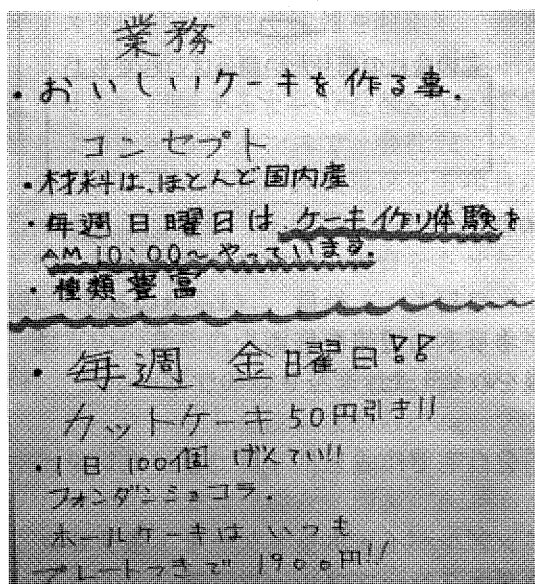 業務
・おいしいケーキを作る事.
コンセプト
・材料は、ほとんど国内産
・毎週日曜日はケーキ作り体験を
AM 10:00～やっています.
・種類豊富
・毎週 金曜日!!
カットケーキ50円引き!!
・1日100個げんてい!!
フォンダンショコラ.
ホールケーキはいつも
プレートつきで1900円!!